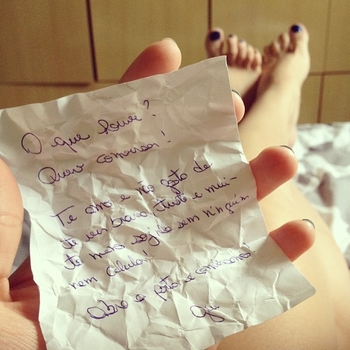 O que houve?
Quero conversar!
Te amo e não gosto de
te ver brava. Justo e mui-
to mais sozinho sem ninguém
nem celular!
Abre a porta e conversa